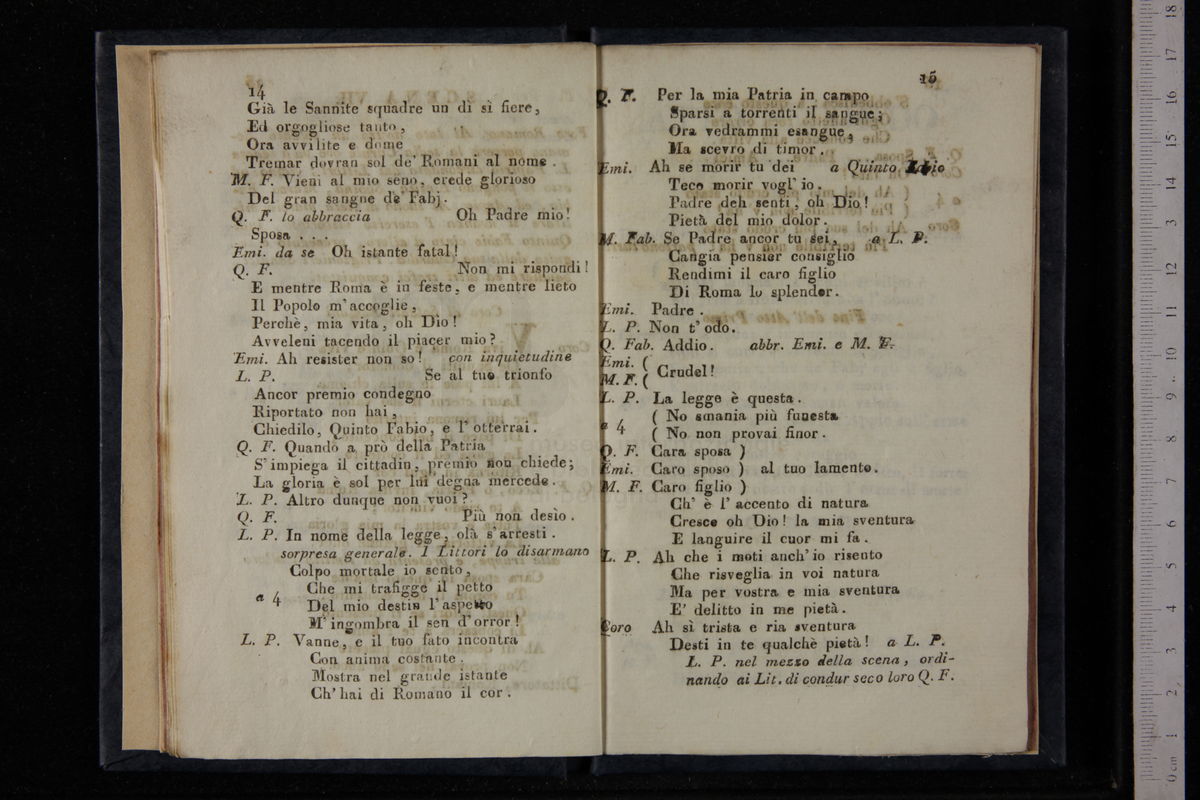 14
Già le Sannite squadre un dì sì fiere,
Ed orgogliose tanto,
Ora avvilite e dome
Tremar dovran sol de' Romani al nome.
M. F. Vieni al mio seno, erede glorioso
Del gran sangue de' Fabj.
Q. F. lo abbraccia Oh Padre mio!
Sposa . . .
Emi. da se Oh istante fatal!
Q. F. Non mi rispondi!
E mentre Roma è in feste, e mentre lieto
Il Popolo m'accoglie,
Perchè, mia vita, oh Dio!
Avveleni tacendo il piacer mio?
Emi. Ah resister non so! con inquietudine
L. P. Se al tuo trionfo
Ancor premio condegno
Riportato non hai,
Chiedilo, Quinto Fabio, e l'otterrai.
Q. F. Quando a prò della Patria
S'impiega il cittadin, premio non chiede;
La gloria è sol per lui degna mercede.
L. P. Altro dunque non vuoi?
Q. F. Più non desìo.
L. P. In nome della legge, olà s'arresti.
sorpresa generale. I Littori lo disarmano
Colpo mortale io sento,
Che mi trafigge il petto
a 4
Del mio destin l'aspetto
M'ingombra il sen d'orror!
L. P. Vanne, e il tuo fato incontra
Con anima costante.
Mostra nel grande istante
Ch'hai di Romano il cor.
15
Q. F. Per la mia Patria in campo
Sparsi a torrenti il sangue;
Ora vedrammi esangue,
Ma scevro di timor.
Emi. Ah se morir tu dei a Quinto
Teco morir vogl'io.
Padre deh senti, oh Dio!
Pietà del mio dolor.
M. Fab. Se Padre ancor tu sei, a L. P.
Cangia pensier consiglio
Rendimi il caro figlio
Di Roma lo splendor.
Emi. Padre.
L. P. Non t'odo.
Q. Fab. Addio. abbr. Emi. e M. F.
Emi. (
Crudel!
M. F. (
L. P. La legge è questa.
( No smania più funesta
a 4
( No non provai finor.
Q. F. Cara sposa )
Emi. Caro sposo ) al tuo lamento.
M. F. Caro figlio )
Ch' è l'accento di natura
Cresce oh Dio! la mia sventura
E languire il cuor mi fa.
L. P. Ah che i moti anch'io risento
Che risveglia in voi natura
Ma per vostra e mia sventura
E' delitto in me pietà.
Coro Ah sì trista e ria sventura
Desti in te qualchè pietà! a L. P.
L. P. nel mezzo della scena, ordi-
nando ai Lit. di condur seco loro Q. F.